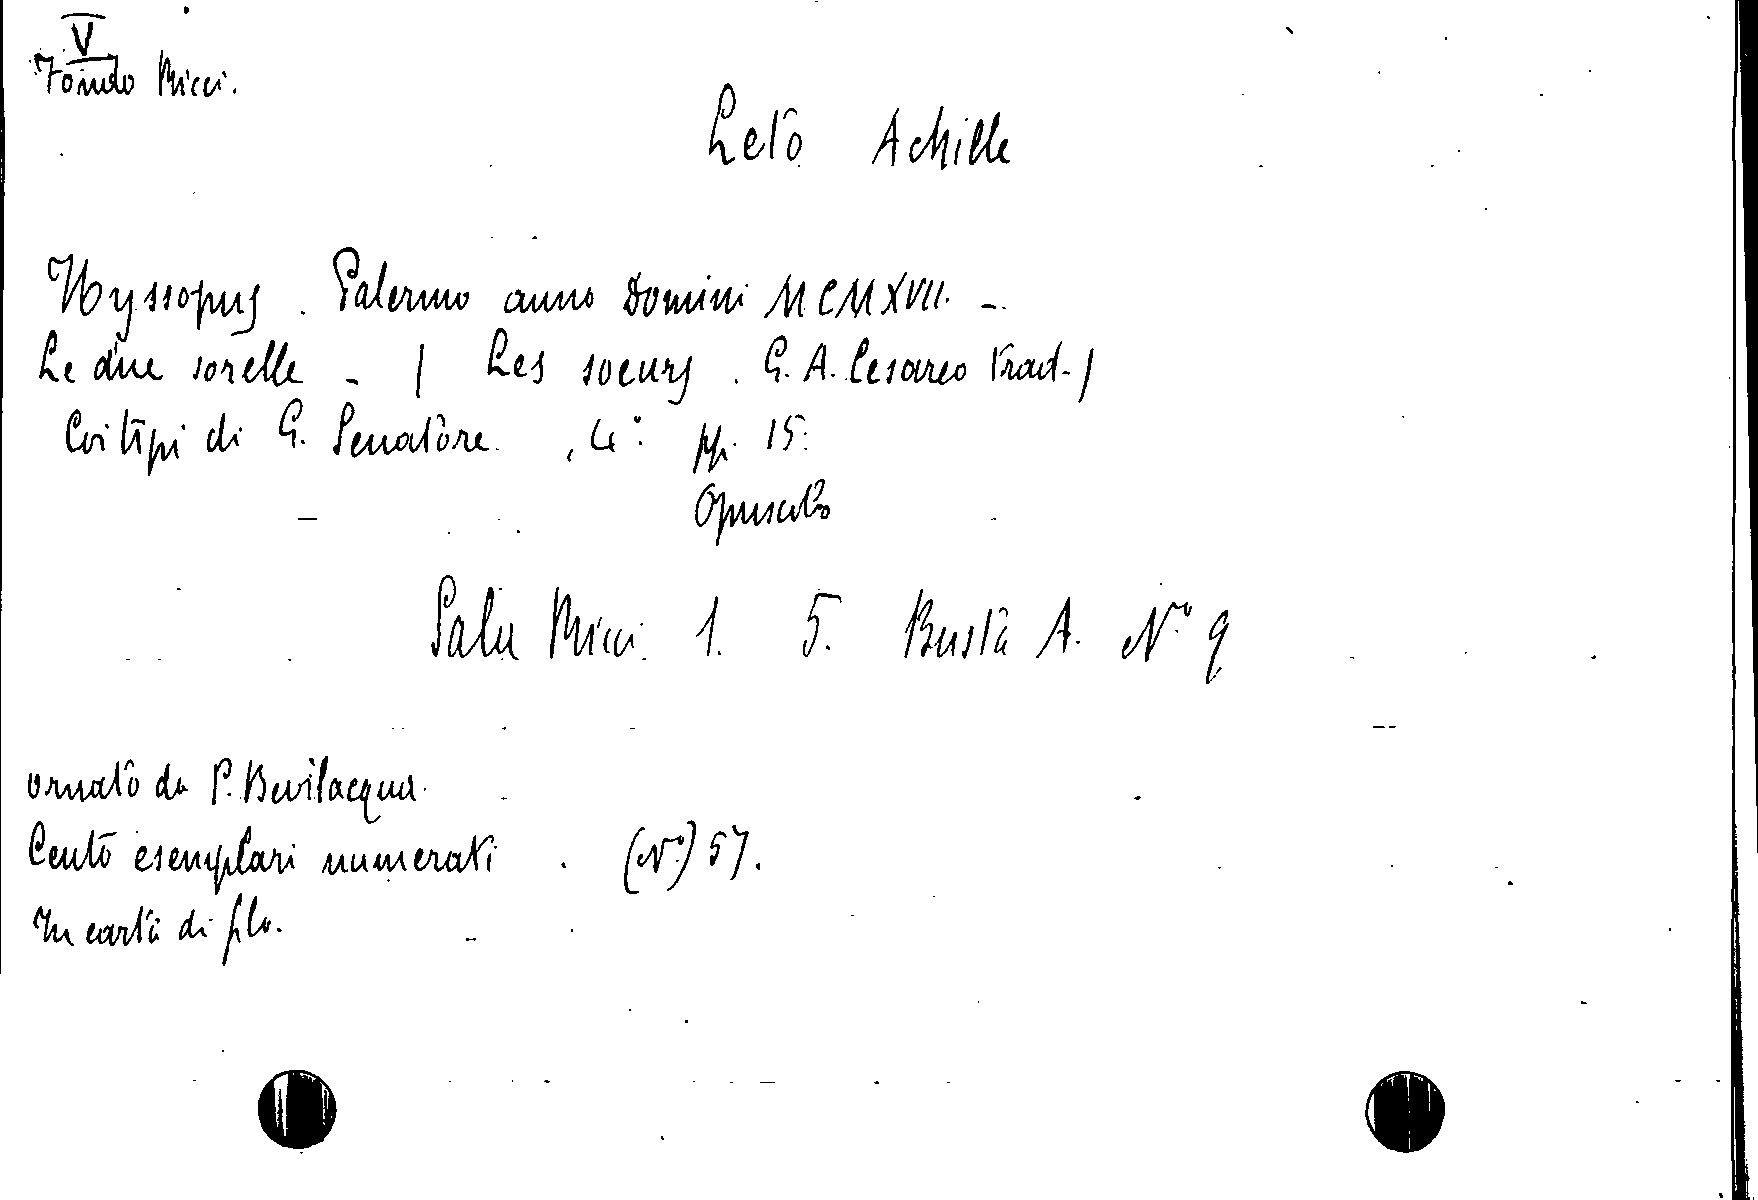 V
Fondo Ricci.
Leto Achille
Hyssopus. Palermo anno Domini MCMXVII. -
Le due sorelle - / Les soeurs. G. A. Cesareo trad. /
Coi tipi di G. Senatore, 4° pp. 15.
Opuscolo
Sala Ricci. 1. 5. Busta A. N° 9
ornato da P. Bevilacqua.
Cento esemplari numerati. (N°) 57.
In carta di filo.